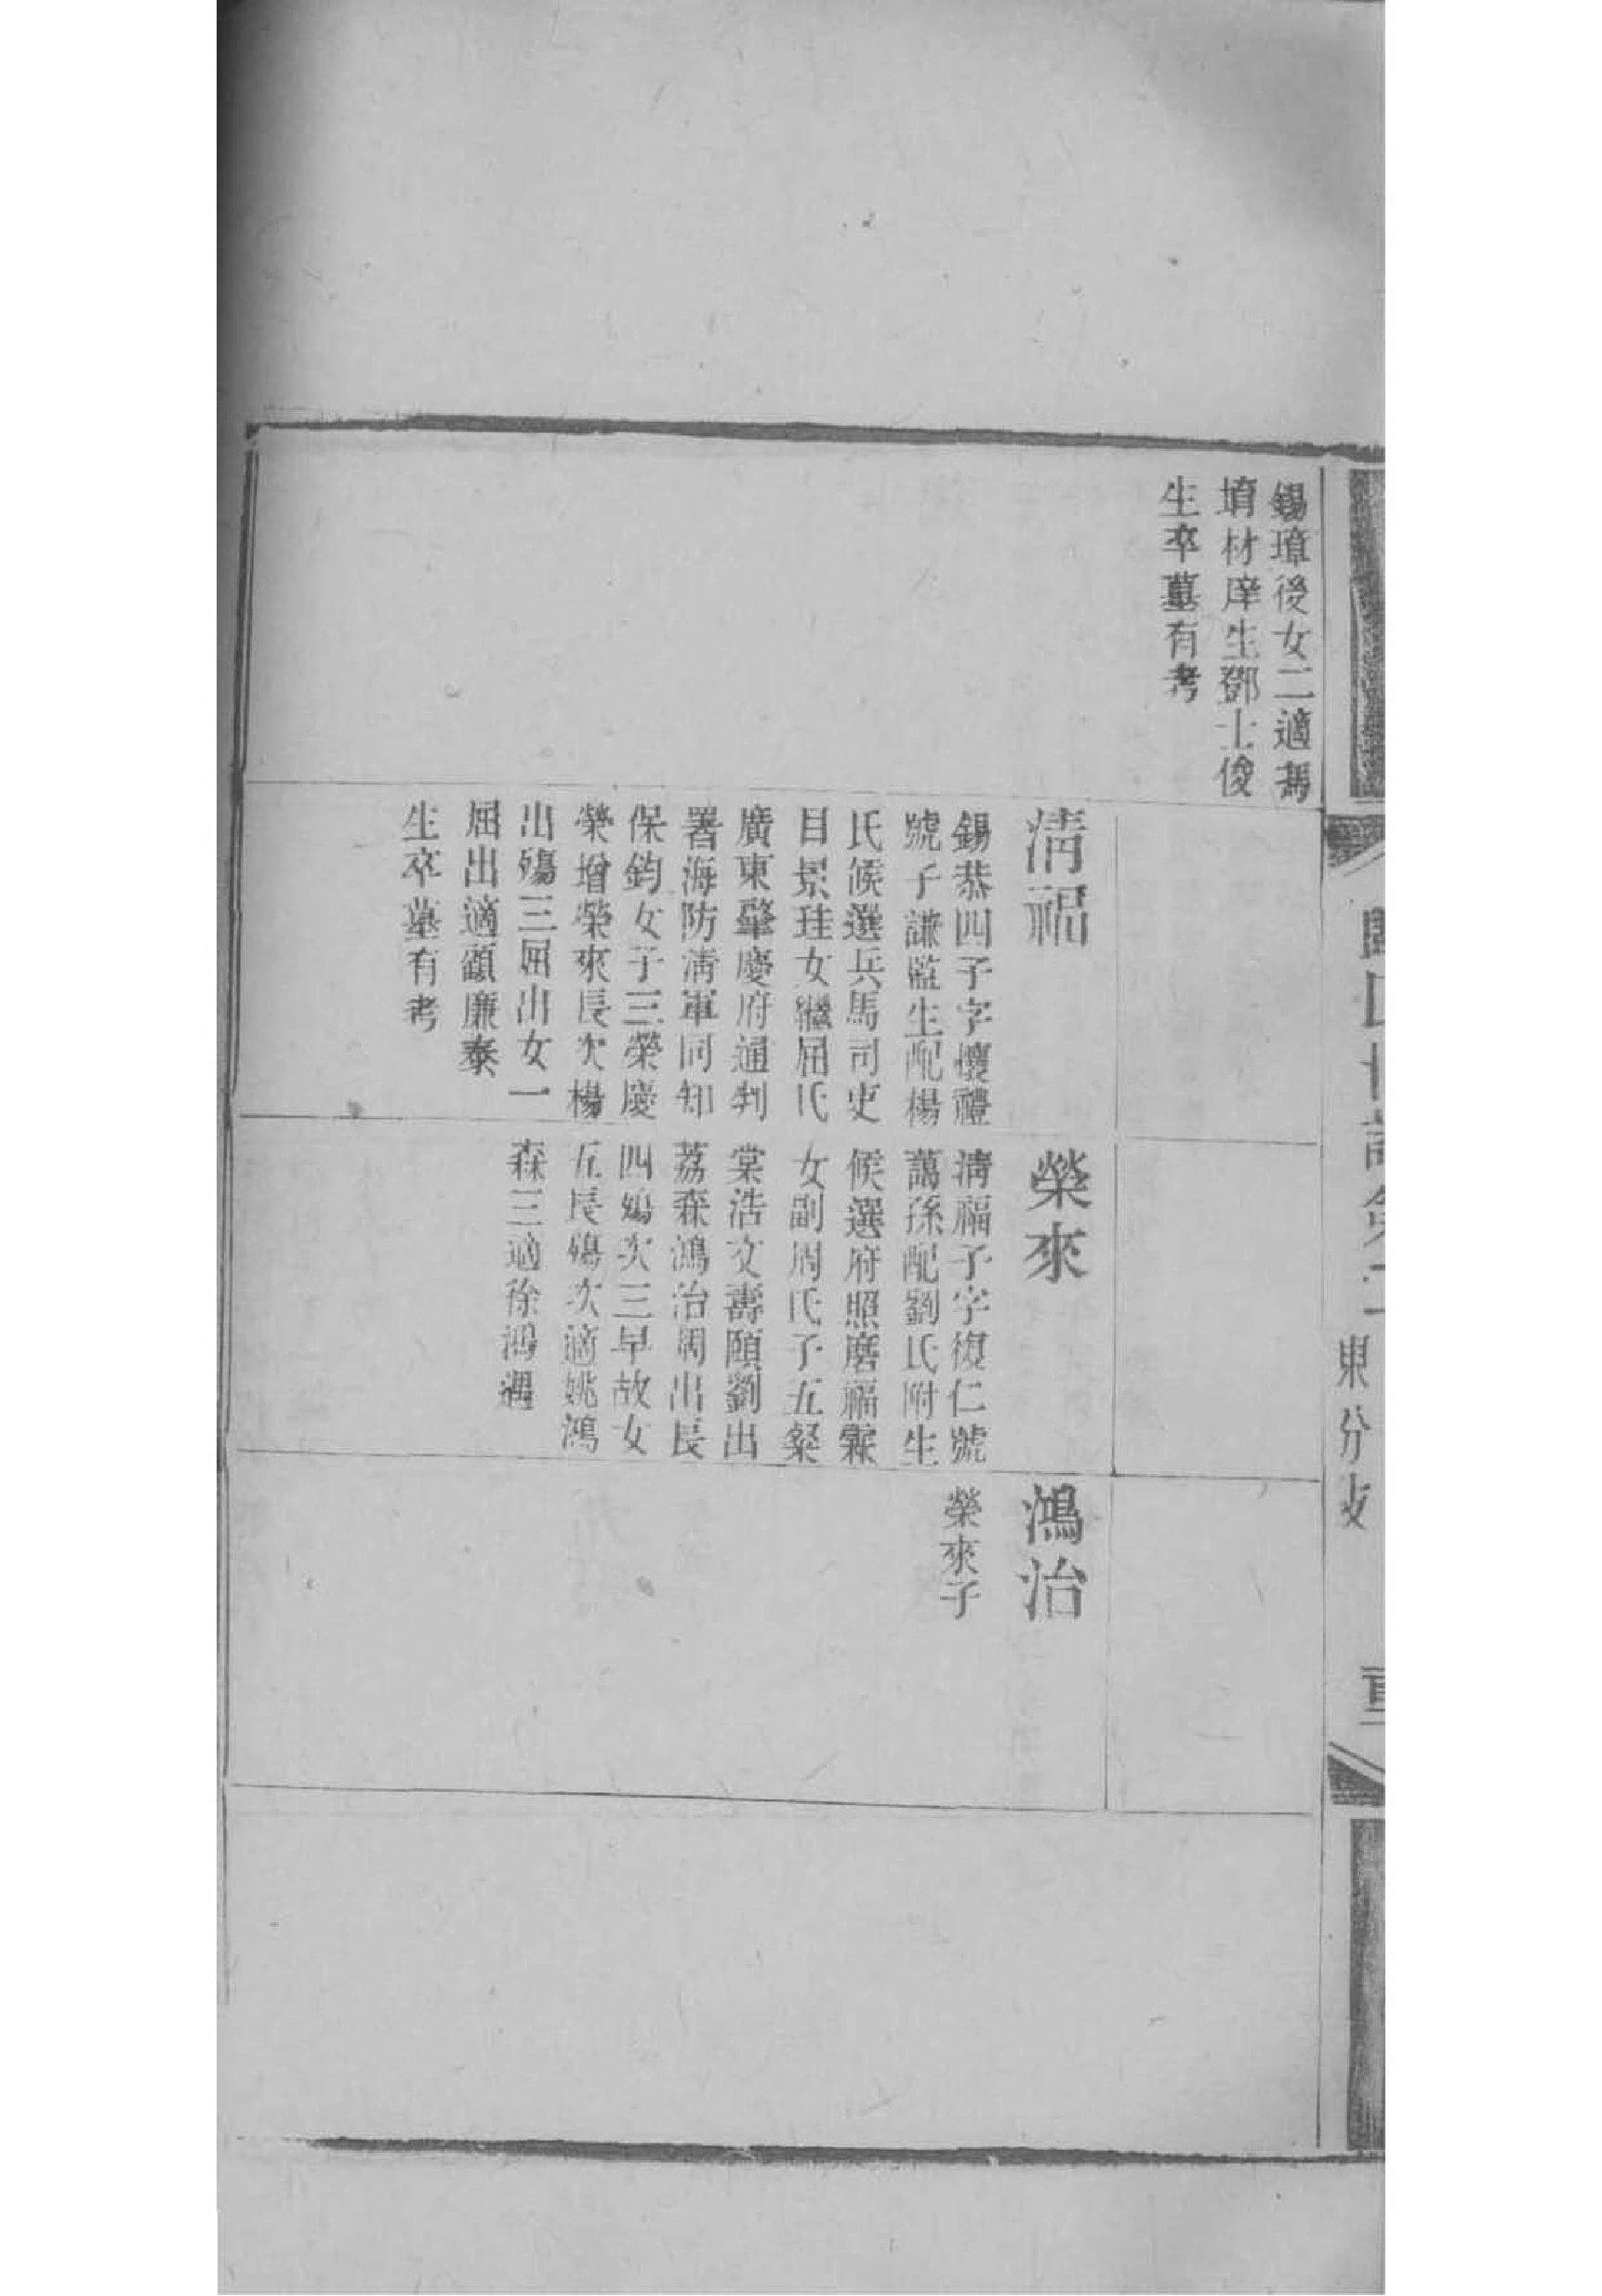 錫璋後女二適馮
堉材庠生鄧士俊
生卒墓有考
淸福
錫恭四子字懷禮
號子謙監生配楊
氏候選兵馬司吏
目景珪女繼屈氏
廣東肇慶府通判
署海防淸軍同知
保鈞女子三榮慶
榮增榮來長次楊
出殤三屈出女一
屈出適顧廉泰
生卒墓有考
榮來
淸福子字復仁號
藹孫配劉氏附生
候選府照磨福
女副周氏子五粲
棠浩文壽頤劉出
荔森鴻治周出長
四殤次三早故女
五長殤次適姚鴻
森三適徐鴻遇
鴻治
榮來子
東分支